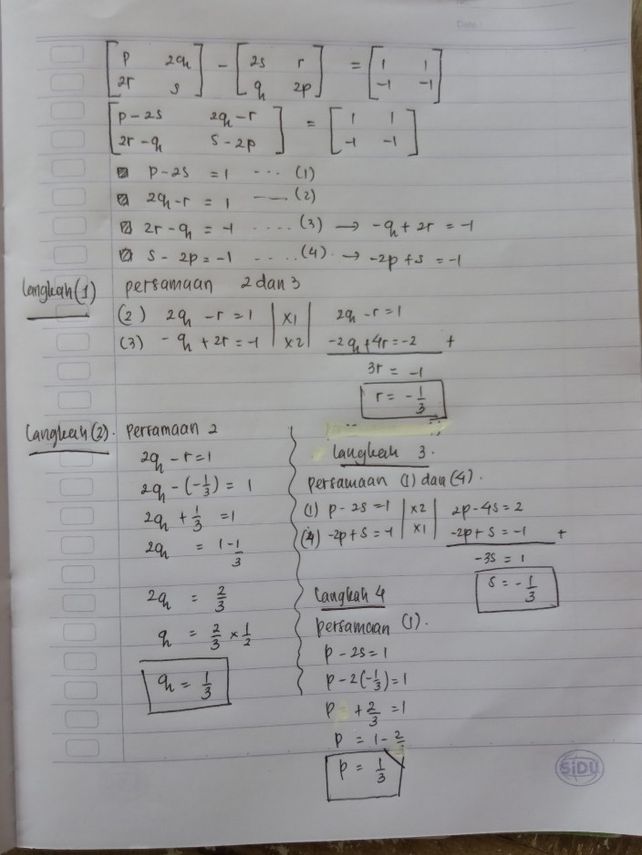 [p 2q; 2r s] - [2s r; q 2p] = [1 1; -1 -1]
[p-2s 2q-r; 2r-q s-2p] = [1 1; -1 -1]
p-2s = 1 ... (1)
2q-r = 1 — (2)
2r-q = -1 .... (3) → -q+2r = -1
s-2p = -1 ....(4) → -2p+s = -1
Langkah(1) persamaan 2 dan 3
(2) 2q-r=1 |x1| 2q-r=1
(3) -q+2r=-1 |x2| -2q+4r=-2 +
3r = -1
r = -1/3
Langkah(2). Persamaan 2
2q-r=1
2q-(-1/3) = 1
2q+1/3 =1
2q = 1-1/3
2q = 2/3
q = 2/3 x 1/2
q = 1/3
Langkah 3.
persamaan (1) dan (4).
(1) p-2s=1 |x2| 2p-4s=2
(4) -2p+s=-1 |x1| -2p+s=-1 +
-3s = 1
s = -1/3
Langkah 4
persamaan (1).
p-2s=1
p-2(-1/3)=1
p +2/3 =1
p = 1-2/3
p = 1/3
SiDU